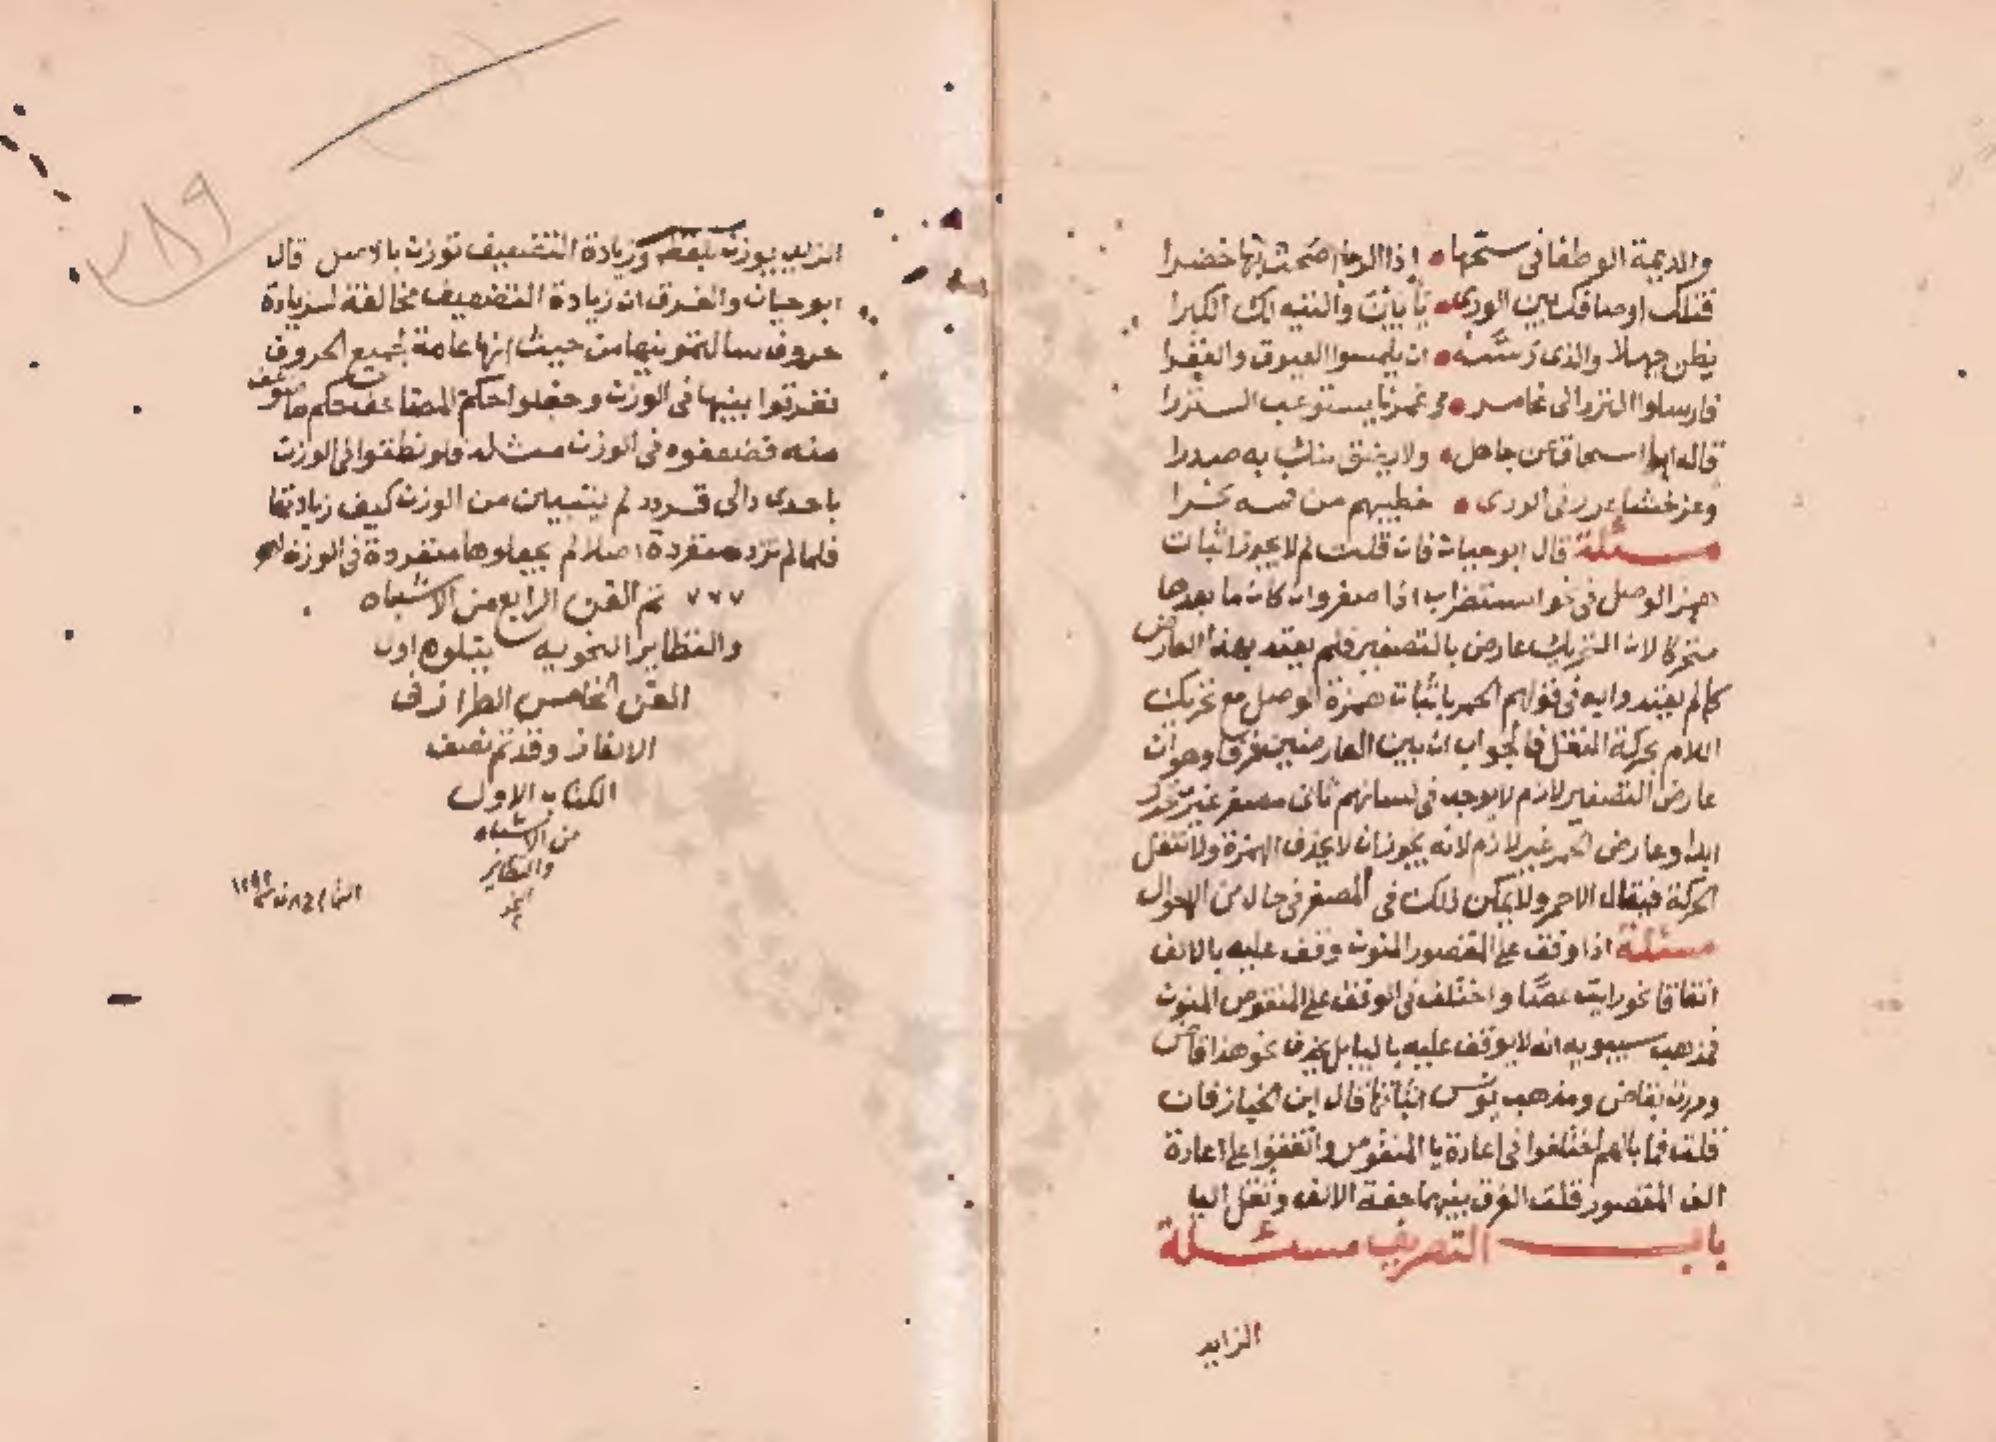 والديمة الوطفا في سحها • إذا الربا أضحت بها خضرا
فتلك أوصافك بين الورى • يأبين والتيه لك الكبرا
يظن جهلا والذي دسه • ان يلمسوا العيوق والغفرا
فارسلوا النزر الى غامر • وغمرنا يستوعب النزرا
قاله ابا اسحاق من جاهل • ولا يضق منك به صدرا
وعن خشار في الورى • خطيبهم من فمه
مسئلة قال ابو حيان فان قلت لم لا يجوز اثبات
همز الوصل في نحو استضراب اذا صغر وان كان ما بعدها
متحركا لان التحريك عارض بالتصغير فلم يعتد بهذا العارض
كما لم يعتدوا به في قولهم الحمر باثبات همزة الوصل مع تحريك
اللام بحركة النقل فالجواب ان بين العارضين فرقا وهو ان
عارض التصغير لازم لا يوجد في لسانهم ثاني مصغر غير متحرك
ابدا وعارض الحمر غير لازم لانه يجوز ان لا يحذف الهمزة ولا تنقل
الحركة فيقال الاحمر ولا يمكن ذلك في المصغر في حال من الاحوال
مسئلة اذا وقف على المقصور المنون وقف عليه بالالف
اتفاقا نحو رايت عصًا واختلف في الوقف على المنقوص المنون
فمذهب سيبويه انه لا يوقف عليه باليا بل يحذف نحو هذا قاض
ومررت بقاض ومذهب يونس اثباتها قال ابن الخباز فان
قلت فما بالهم اختلفوا في اعادة يا المنقوص واتفقوا على اعادة
الف المقصور قلت الفرق بينهما خفة الالف وثقل اليا
باب التصريف مسئلة
الزايد
الزايد يوزن بلفظه وزيادة التضعيف توزن بالاصل قال
ابو حيان والفرق ان زيادة التضعيف مخالفة لزيادة
حروف سالتمونيها من حيث انها عامة لجميع الحروف
ففرقوا بينها في الوزن وجعلوا حكم المضاعف حكم ما ضوعف
منه فضعفوه في الوزن مثله فلو نطقوا في الوزن
باحدى دالي قردد لم يتبين من الوزن كيف زيادتها
فلما لم تزد منفردة اصلا لم يجعلوها منفردة في الوزن
تم الفن الرابع من الاشباه
والنظاير النحويه يتلوه اول
الفن الخامس الطراز في
الالغاز وقد تم نصف
الكتاب الاول
من الاشباه
والنظاير
٣٨٩